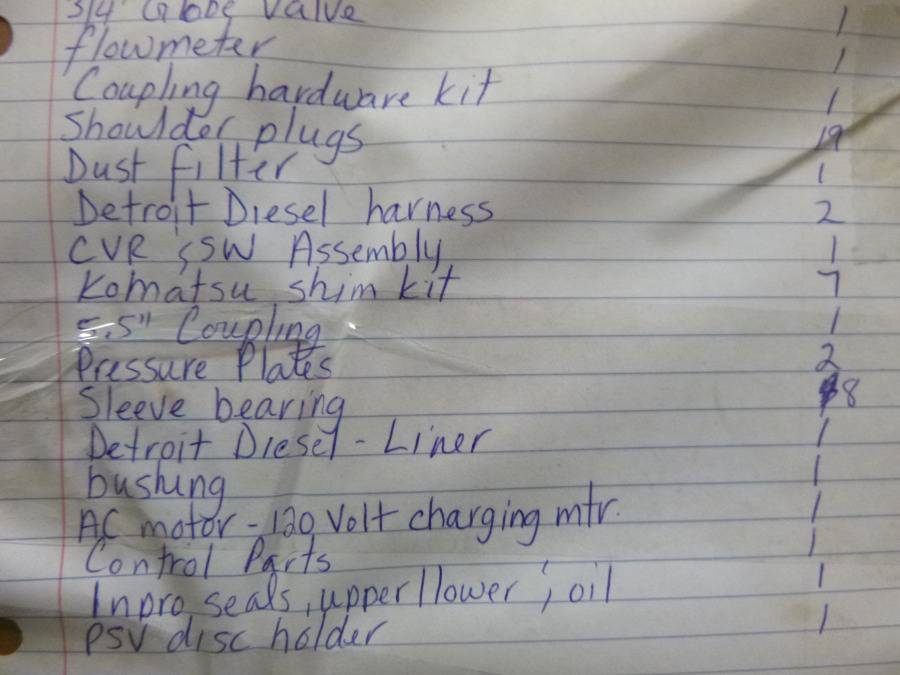 3/4" Globe Valve 1
flowmeter 1
Coupling hardware kit 1
Shoulder plugs 19
Dust filter 1
Detroit Diesel harness 2
CVR & SW Assembly 1
Komatsu shim kit 7
5.5" Coupling 1
Pressure Plates 2
Sleeve bearing 8
Detroit Diesel - Liner 1
bushing 1
AC motor - 120 Volt charging mtr. 1
Control Parts 1
Inpro seals, upper/lower ; oil 1
PSV disc holder 1